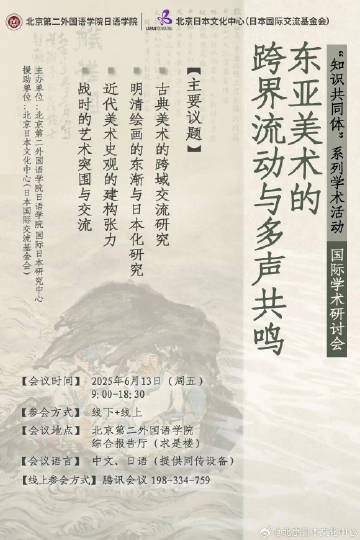 北京第二外国语学院日语学院
北京日本文化中心(日本国际交流基金会)
“知识共同体”系列学术活动
国际学术研讨会
东亚美术的
跨界流动与多声共鸣
【主要议题】
古典美术的跨域交流研究
明清绘画的东渐与日本化研究
近代美术史观的建构张力
战时的艺术突围与交流
主办单位:北京第二外国语学院日语学院 国际日本研究中心
援助单位:北京日本文化中心(日本国际交流基金会)
【会议时间】 2025年6月13日(周五)
9:00-18:30
【参会方式】 线下+线上
【会议地点】 北京第二外国语学院
综合报告厅(求是楼)
【会议语言】 中文、日语(提供同传设备)
【线上参会方式】腾讯会议 198-334-759
@北京日本文化中心